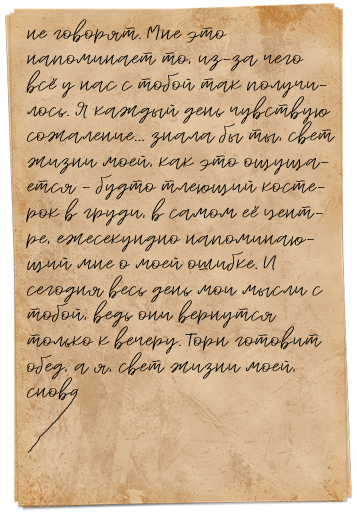 не говорят. Мне это
напоминает то, из-за чего
всё у нас с тобой так получи-
лось. Я каждый день чувствую
сожаление... знала бы ты, свет
жизни моей, как это ощуща-
ется - будто тлеющий косте-
рок в груди, в самом её цент-
ре, ежесекундно напоминаю-
щий мне о моей ошибке. И
сегодня весь день мои мысли с
тобой, ведь они вернутся
только к вечеру. Тори готовит
обед, а я, свет жизни моей,
снова